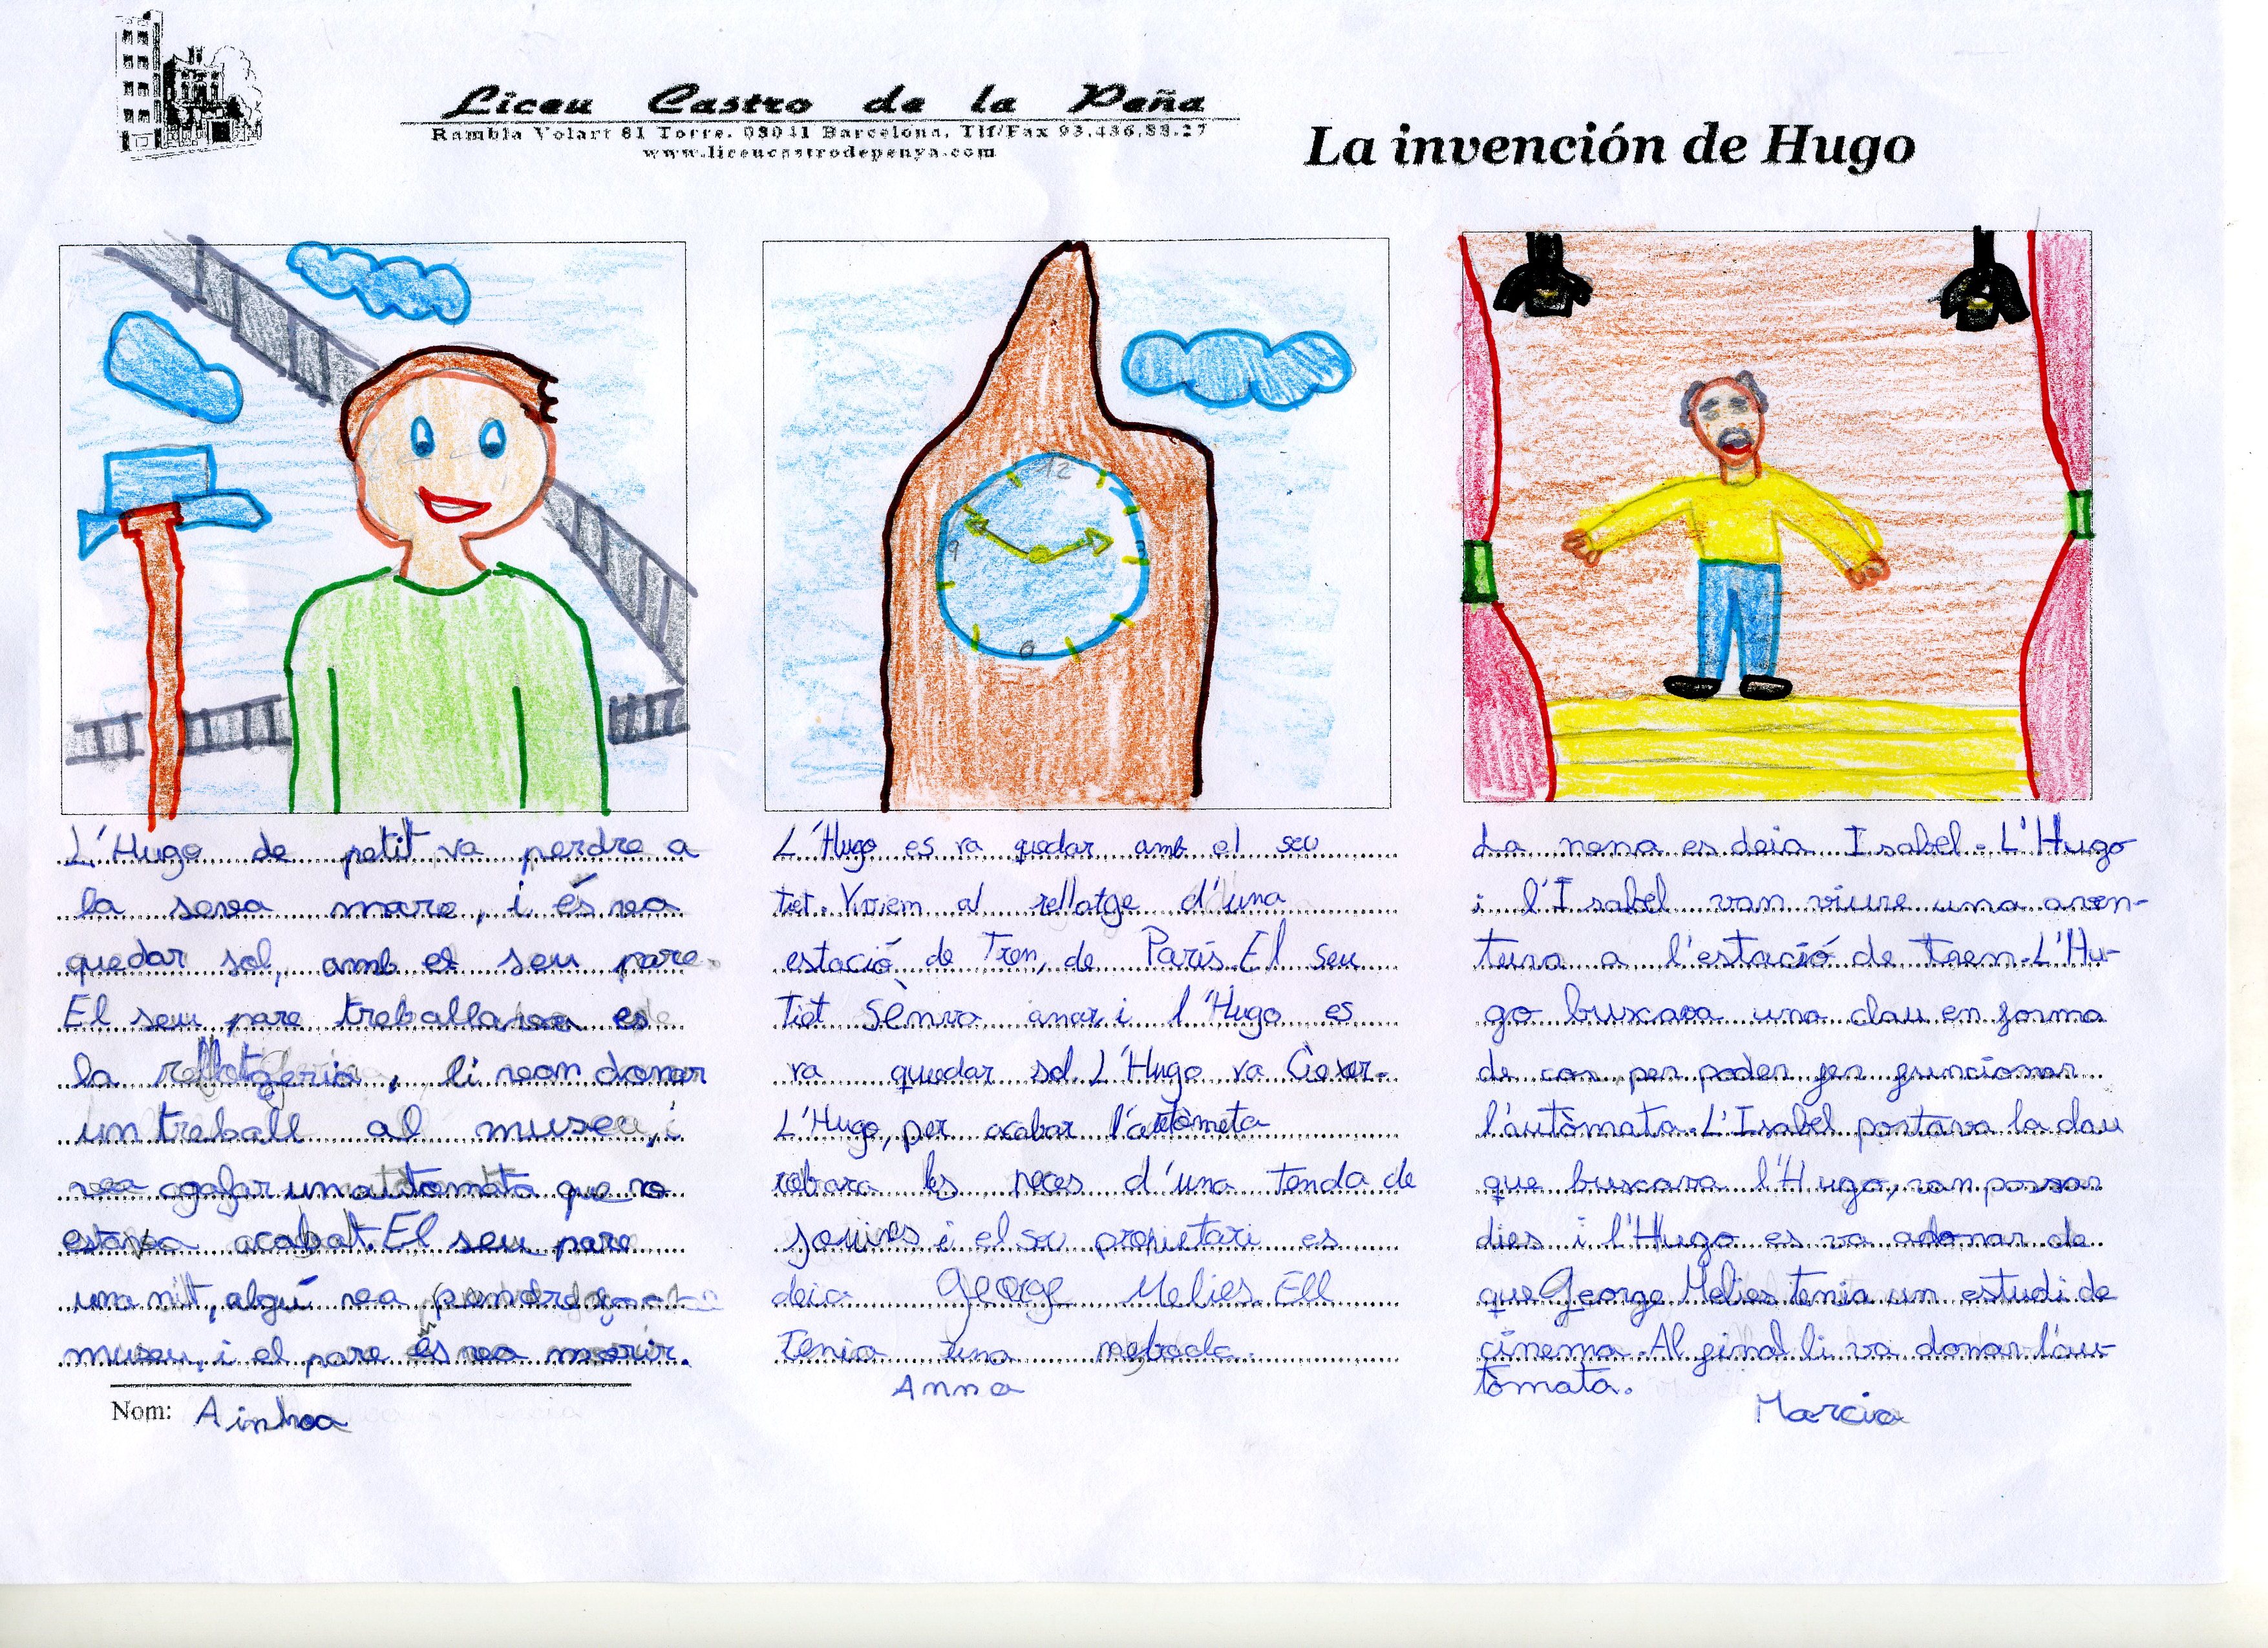 Liceu Castro de la Peña
Rambla Volart 81 Torre. 08041 Barcelona. Tlf/Fax 93.436.88.27
www.liceucastrodepenya.com
La invención de Hugo
L'Hugo de petit va perdre a
la seva mare, i és va
quedar sol, amb el seu pare.
El seu pare treballava es
la rellotgeria, li van donar
un treball al museu, i
va agafar un autòmata que no
estava acabat. El seu pare
una nit, algú va pendre
museu, i el pare és va morir.
Nom: Ainhoa
L'Hugo es va quedar amb el seu
tiet. Vivien al rellotge d'una
estació de Tren, de París. El seu
Tiet s'en va anar i l'Hugo es
va quedar sol. L'Hugo va
L'Hugo, per acabar l'autòmata
robava les peces d'una tenda de
jouines i el seu propietari es
deia George Melies. Ell
Tenia una neboda.
Anna
La nena es deia Isabel. L'Hugo
i l'Isabel van viure una aven-
tura a l'estació de tren. L'Hu-
go buscava una clau en forma
de cor per poder fer funcionar
l'autòmata. L'Isabel portava la clau
que buscava l'Hugo, van passar
dies i l'Hugo es va adonar de
que George Melies tenia un estudi de
cinema. Al final li va donar l'au-
tòmata.
Marcia